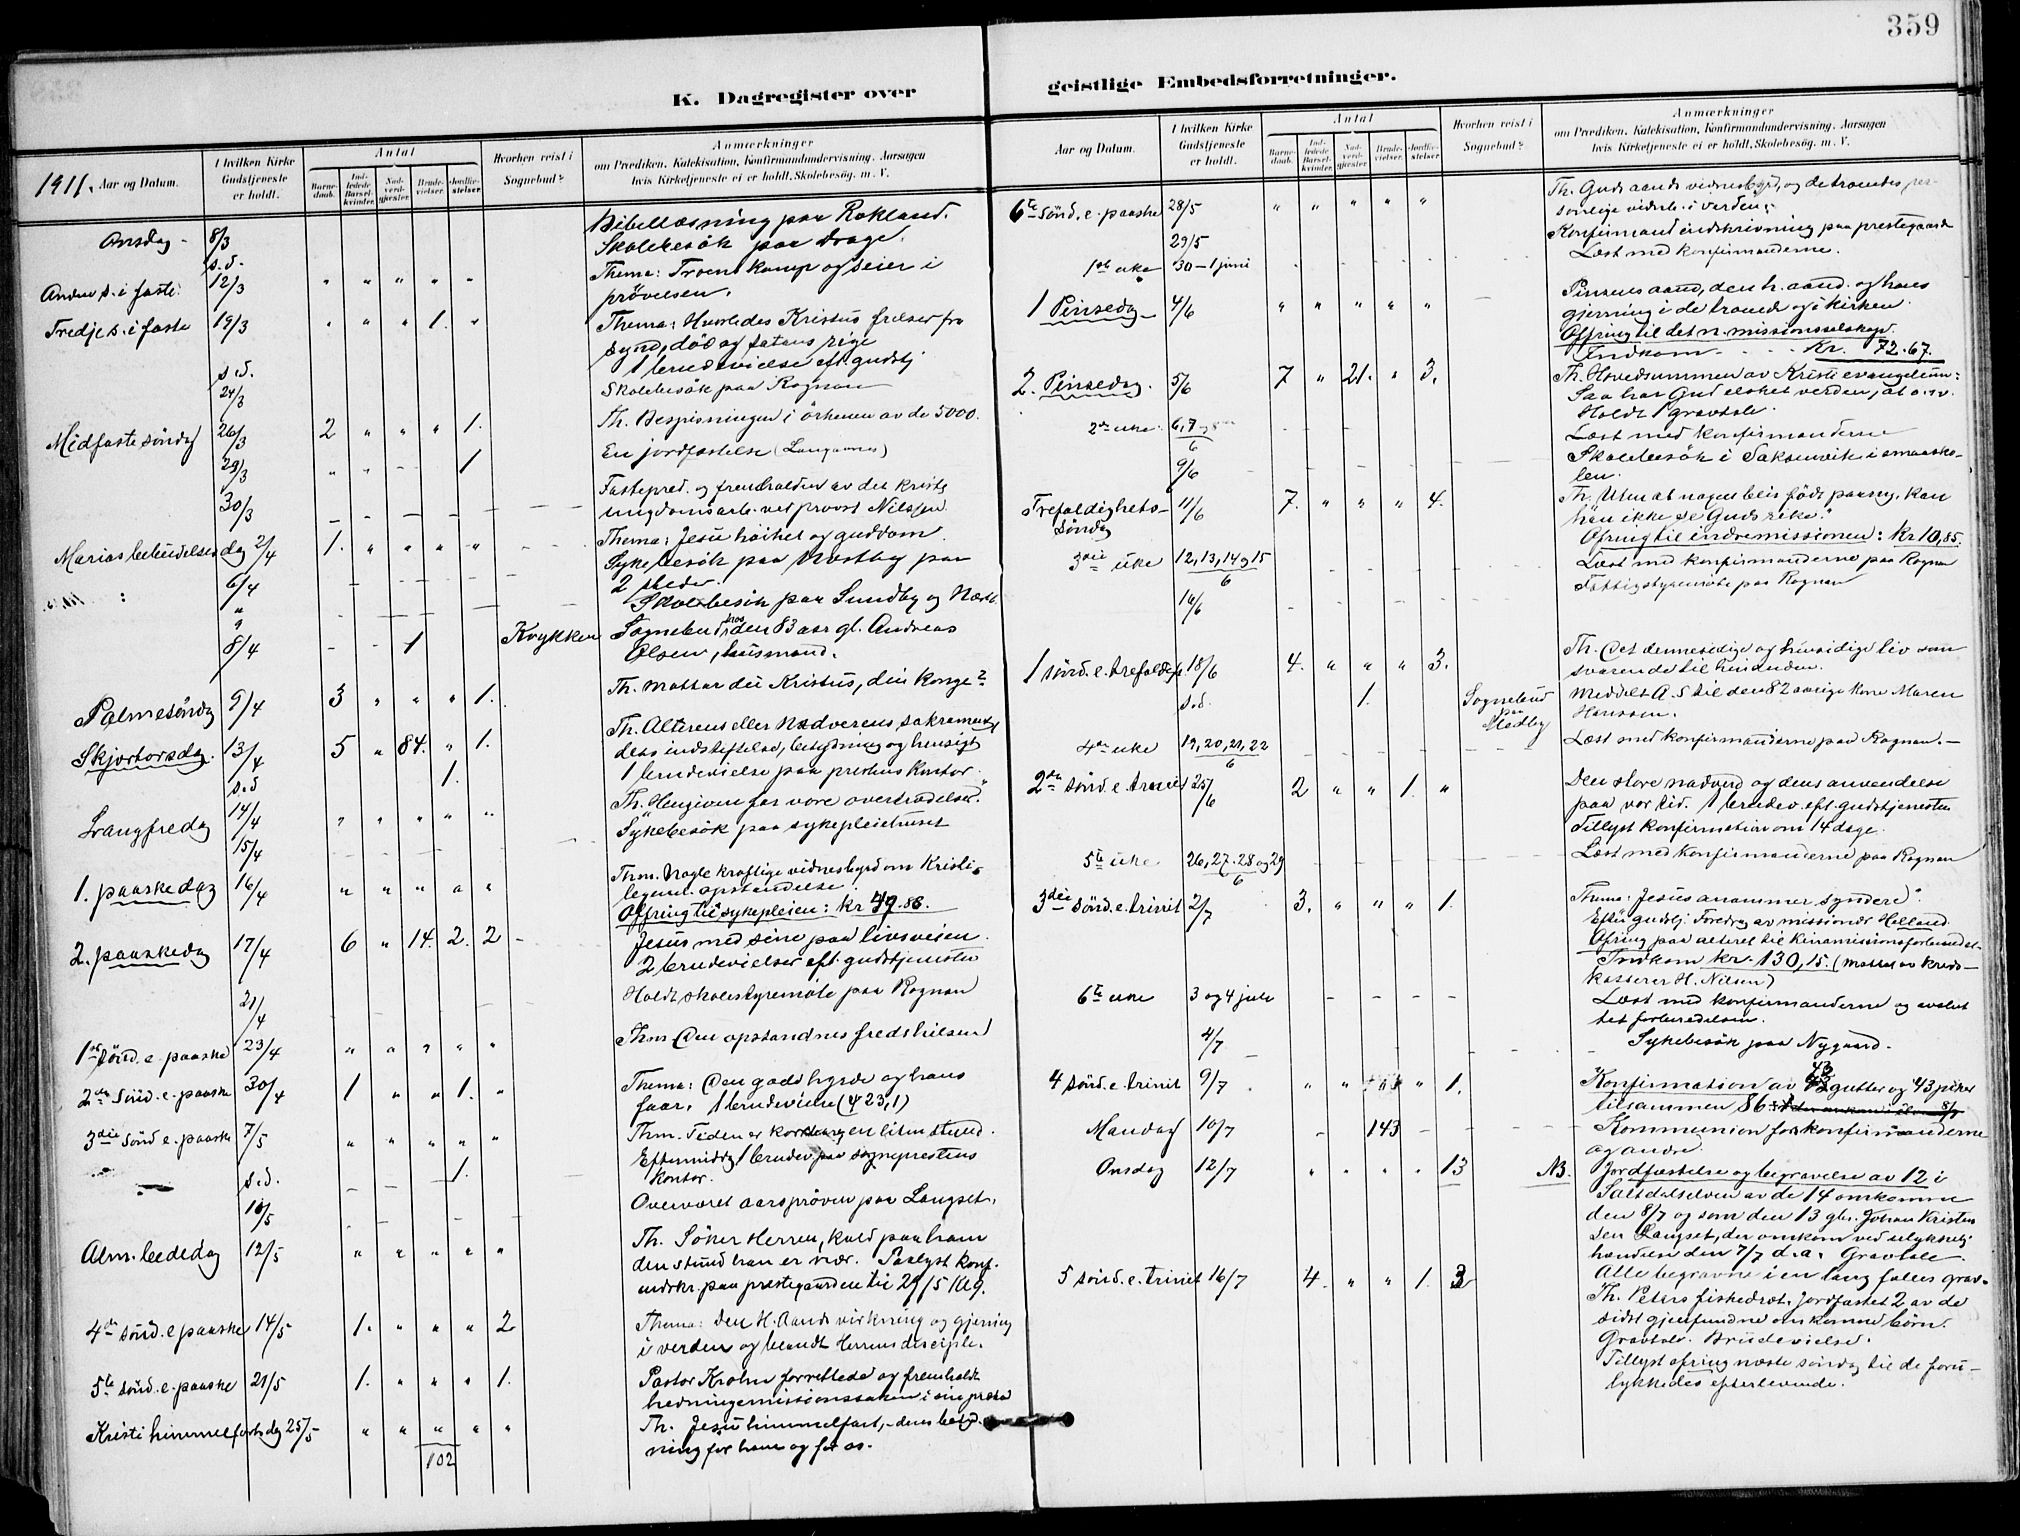 359
K. Dagregister over
geistlige Embedsforretninger.
1911. Aar og Datum.
I hvilken Kirke Gudstjeneste er holdt.
Antal
Barnedaab.
Indledede Barselkvinder.
Nadverdgjæster.
Brudevielser.
Jordfæstelser.
Hvorhen reist i Sognebud?
Anmærkninger
om Prædiken, Katekisation, Konfirmandundervisning, Aarsagen
hvis Kirketjeneste ei er holdt, Skolebesøg, m. V.
Onsdag 8/3 Bibellæsning paa Rokland.
s.d. Skolebesök paa Drage.
Anden s. i faste 12/3 " " " " " Thema: Troens kamp og seier i
prövelsen.
Tredje s. i faste 19/3 " " " 1. " Thema: Hvorledes Kristus frelser fra
synd, död og satans rige
s.d. 1 brudevielse eft gudstj
24/3 Skolebesök paa Rognan
Midfaste söndag 26/3 2 " " " 1. Th. Bespisningen i örkenen av de 5000.
29/3 " " " 1 En jordfæstelse (Langaanes)
30/3 Fastepræd. og fremholden av det kristl.
ungdomsarb. ved provst Nilssen
Marias bebudelses dag 2/4 1. " " " " Thema: Jesu höihet og guddom.
6/4 Sykebesök paa Næstby paa
2 steder.
" Skolebesök paa Sundby og Næstb.
8/4 1 Kvykken Sognebud hos den 83 aar gl. Andreas
Olsen, husmand.
Palmesöndag 9/4 3 " " " 1. Th. Mottar du Kristus, din konge?
Skjærtorsdag 13/4 5 " 84. " 1. Th. Alterens eller Nadverens sakrament,
dets indstiftelse, betydning og hensigt
s.d 1. 1 brudevielse paa prestens kontor.
Langfredag 14/4 " " " " " Th. Hengiven for vore overtrædelser."
15/4 Sykebesök paa sykepleiehuset
1. paaskedag 16/4 " " " " " Thm. Nogle kraftige vidnesbyrd om Kristi
legeml. opstandelse.
Offring til sykepleien: kr 49.86.
2. paaskedag 17/4 6 " 14. 2. 2 Jesus med sine paa livsveien.
2 brudevielser eft. gudstjenesten
21/4 Holdt skolestyremöte paa Rognan
1ste sönd. e. paaske 23/4 " " " " " Thm. Den opstandnes fredshilsen
2den Sönd. e. paaske 30/4 1 " " 1. " Thema: Den gode hyrde og hans
faar. 1 brudevielse (ψ 23,1)
3die sönd e. paaske 7/5 " " " " " Thm. Tiden er kort en liten stund.
s.d. 1. Eftermiddag 1 brudev. paa sogneprestens
kontor.
10/5 Overværet aarspröven paa Langset.
Alm. bededag 12/5 " " " " " Th. Söker Herren, kald paa ham
den stund han er nær. Paalyst konf.
indskr. paa prestegaarden til 29/5 Kl 9.
4de sönd. e. paaske 14/5 1. " " " 2 Thema: Den H. Aands virkning og gjerning
i verden og blandt Herrens disciple.
5te sönd. e. paaske 21/5 1. " " " 1. Pastor Krohn forrettede og fremholdt
hedningemissionssaken i sin præk.
Kristi himmelfartsdag 25/5 " " " " " Th. Jesu himmelfart, - dens betyd-
ning for ham og for os.
102
Aar og Datum.
I hvilken Kirke Gudstjeneste er holdt.
Antal
Barnedaab.
Indledede Barselkvinder.
Nadverdgjæster.
Brudevielser.
Jordfæstelser.
Hvorhen reist i Sognebud?
Anmærkninger
om Prædiken, Katekisation, Konfirmandundervisning, Aarsagen
hvis Kirketjeneste ei er holdt, Skolebesøg, m. V.
6te sönd. e. paaske 28/5 " " " " " Th. Guds aands vidnesbyrd, og de troendes per-
sonlige vidnesb. i verden.
29/5 Konfirmandindskrivning paa prestegaarden
1ste uke 30 – 1 juni Læst med konfirmanderne.
1 Pinsedag 4/6 " " " " " Pinsens aand, den h. aand. og hans
gjerning i de troende og i kirken.
Offring til det n. missionsselskap.
Indkom . . . Kr. 72.67.
2. Pinsedag. 5/6 7 " 21. " 3. Th. Hovedsummen av Kristi evangelium:
Saa har Gud elsket verden, at o.s.v.
Holdt 1 gravtale.
2den uke 6, 7 og 8/6 Læst med konfirmanderne
9/6 Skolebesök i Saksenvik i smaasko-
len.
Trefoldighets-söndag 11/6 7. " " " 4. Th. Uten at nogen blir födt paany, kan
han ikke se Guds rike."
Ofring til indremissionen: kr 10,85.
3die uke 12, 13, 14 og 15/6 Læst med konfirmanderne paa Rognan
16/6 Fattigstyremöte paa Rognan
1 sönd. e. trefoldigh. 18/6 4. " " " 3. Th. Det dennesidige og hinsidige liv som
svarende til hinanden.
s.d. 1. Sognebud paa Medby Meddelt A. S til den 82 aarige kone Maren
Hanssen.
4de uke 19, 20, 21, 22/6 Læst med konfirmanderne paa Rognan. –
2den sönd. e. trinit 25/6 2 " " 1. " Den store nadverd og dens anvendelse
paa vor tid. 1 brudev. eft. gudstjenesten
Tillyst konfirmation om 14 dage.
5te uke 26, 27. 28 og 29/6 Læst med konfirmanderne paa Rognan
3die sönd e. trinit 2/7 3. " " " 1. Thema: Jesus anammer syndere".
Efter gudstj. Foredrag av missionær Helland.
Ofring paa alteret til Kinamissionsforbundet.
Indkom kr. 130,15. (Mottat av kreds-
kasserer H. Nilsen)
6te uke 3 og 4 juli Læst med konfirmanderne og avslut
tet forberedelsen.
4/7 Sykebesök paa Nygaard.
4 sönd. e. trinit 9/7 " " " 1. Konfirmation av 43 gutter og 43 piker
tilsammen 86
Mandag 10/7 143 Kommunion for konfirmanderne
og andre.
Onsdag 12/7 " " " " 13 NB. Jordfæstelse og begravelse av 12 i
Saltdalselven av de 14 omkomne
den 8/7 og som den 13 gbr. Johan Kristen
sen Langset, der omkom ved ulykkelig
hændelse den 7/7 d.a. Gravtale.
Alle begravne i en lang fælles grav.
5 sönd. e. trinit 16/7 4. " " 1. 3 Th. Peters fiskedræt. Jordfæstet 2 av de
sidst gjenfundne omkomne börn.
Gravtale. Brudevielse.
Tillyst ofring næste söndag til de foru-
lykkedes efterlevende.